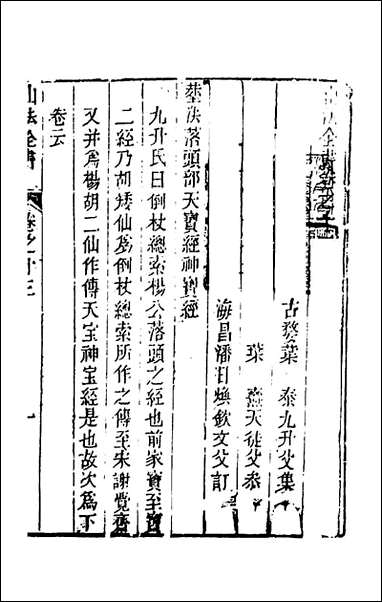 山法全書卷之十三
古婺葉 泰九升父集
葉 齋天徒父參
海昌潘日煥欽文父訂
塟法落頭部天寳經神寳經
九升氏曰倒杖總索楊公落頭之經也前家寳至寳
二經乃胡矮仙爲倒杖總索所作之傳至宋謝覺齋
又并爲楊胡二仙作傳天宝神宝經是也故次爲下
卷云
山法全書
卷之十三
一